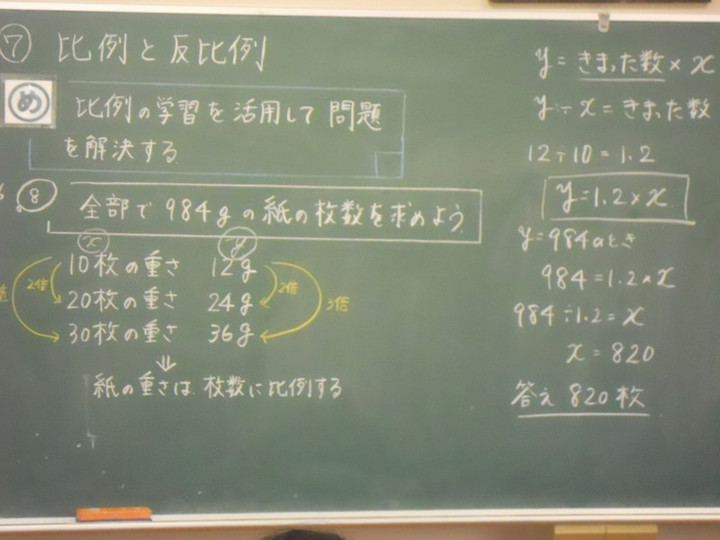 ⑦ 比例と反比例
め 比例の学習を活用して問題
を解決する
⑧ 全部で984gの紙の枚数を求めよう
x y
10枚の重さ 12g
20枚の重さ 24g
30枚の重さ 36g
2倍
倍
2倍
3倍
⇓
紙の重さは枚数に比例する
y=きまった数×x
y÷x=きまった数
12÷10=1.2
y=1.2×x
y=984のとき
984=1.2×x
984÷1.2=x
x=820
答え 820枚